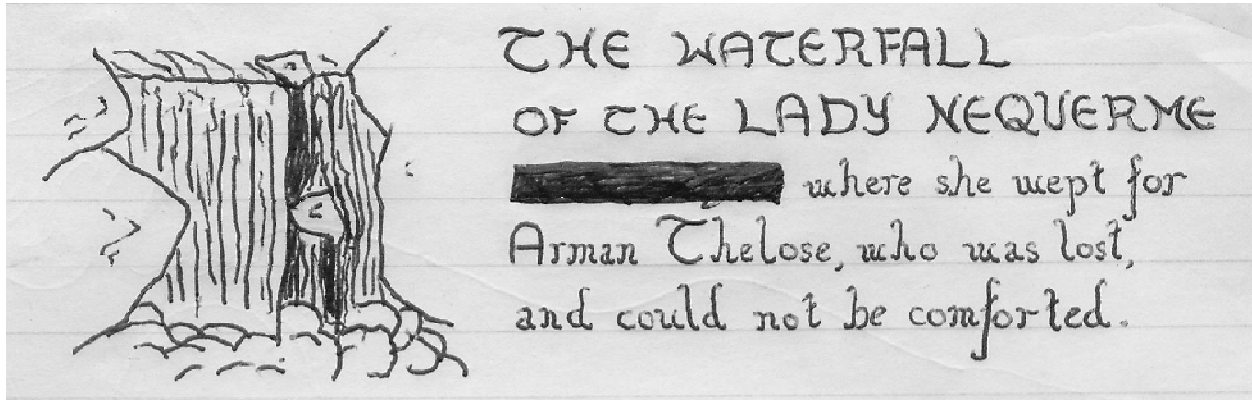 THE WATERFALL
OF THE LADY NEQUERME
where she wept for
Arman Thelose, who was lost,
and could not be comforted.